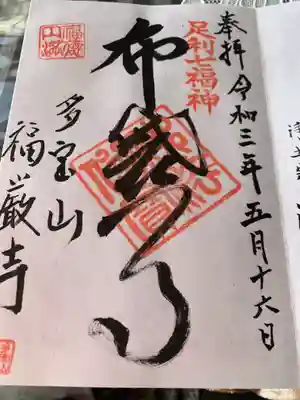 奉拝 令和三年五月十六日
足利七福神
布袋尊
多宝山
福厳寺